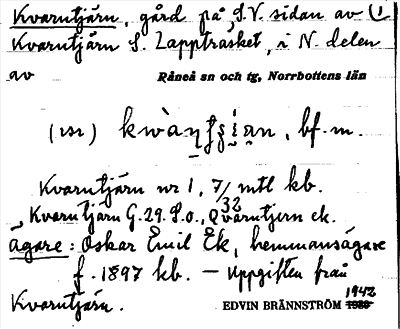 Kvarntjärn, gård på S.V. sidan av (1
Kvarntjärn S. Lappträsket, i N. delen
av Råneå sn och tg, Norrbottens län
bf. m.
Kvarntjärn nr 1, 7/32 mtl kb.
Kvarntjärn G. 29. S.o., Qvarntjern ek.
Ägare: Oskar Emil Ek, hemmansägare
f. 1897 kb. — Uppgiften från
Kvarntjärn. EDVIN BRÄNNSTRÖM 1942